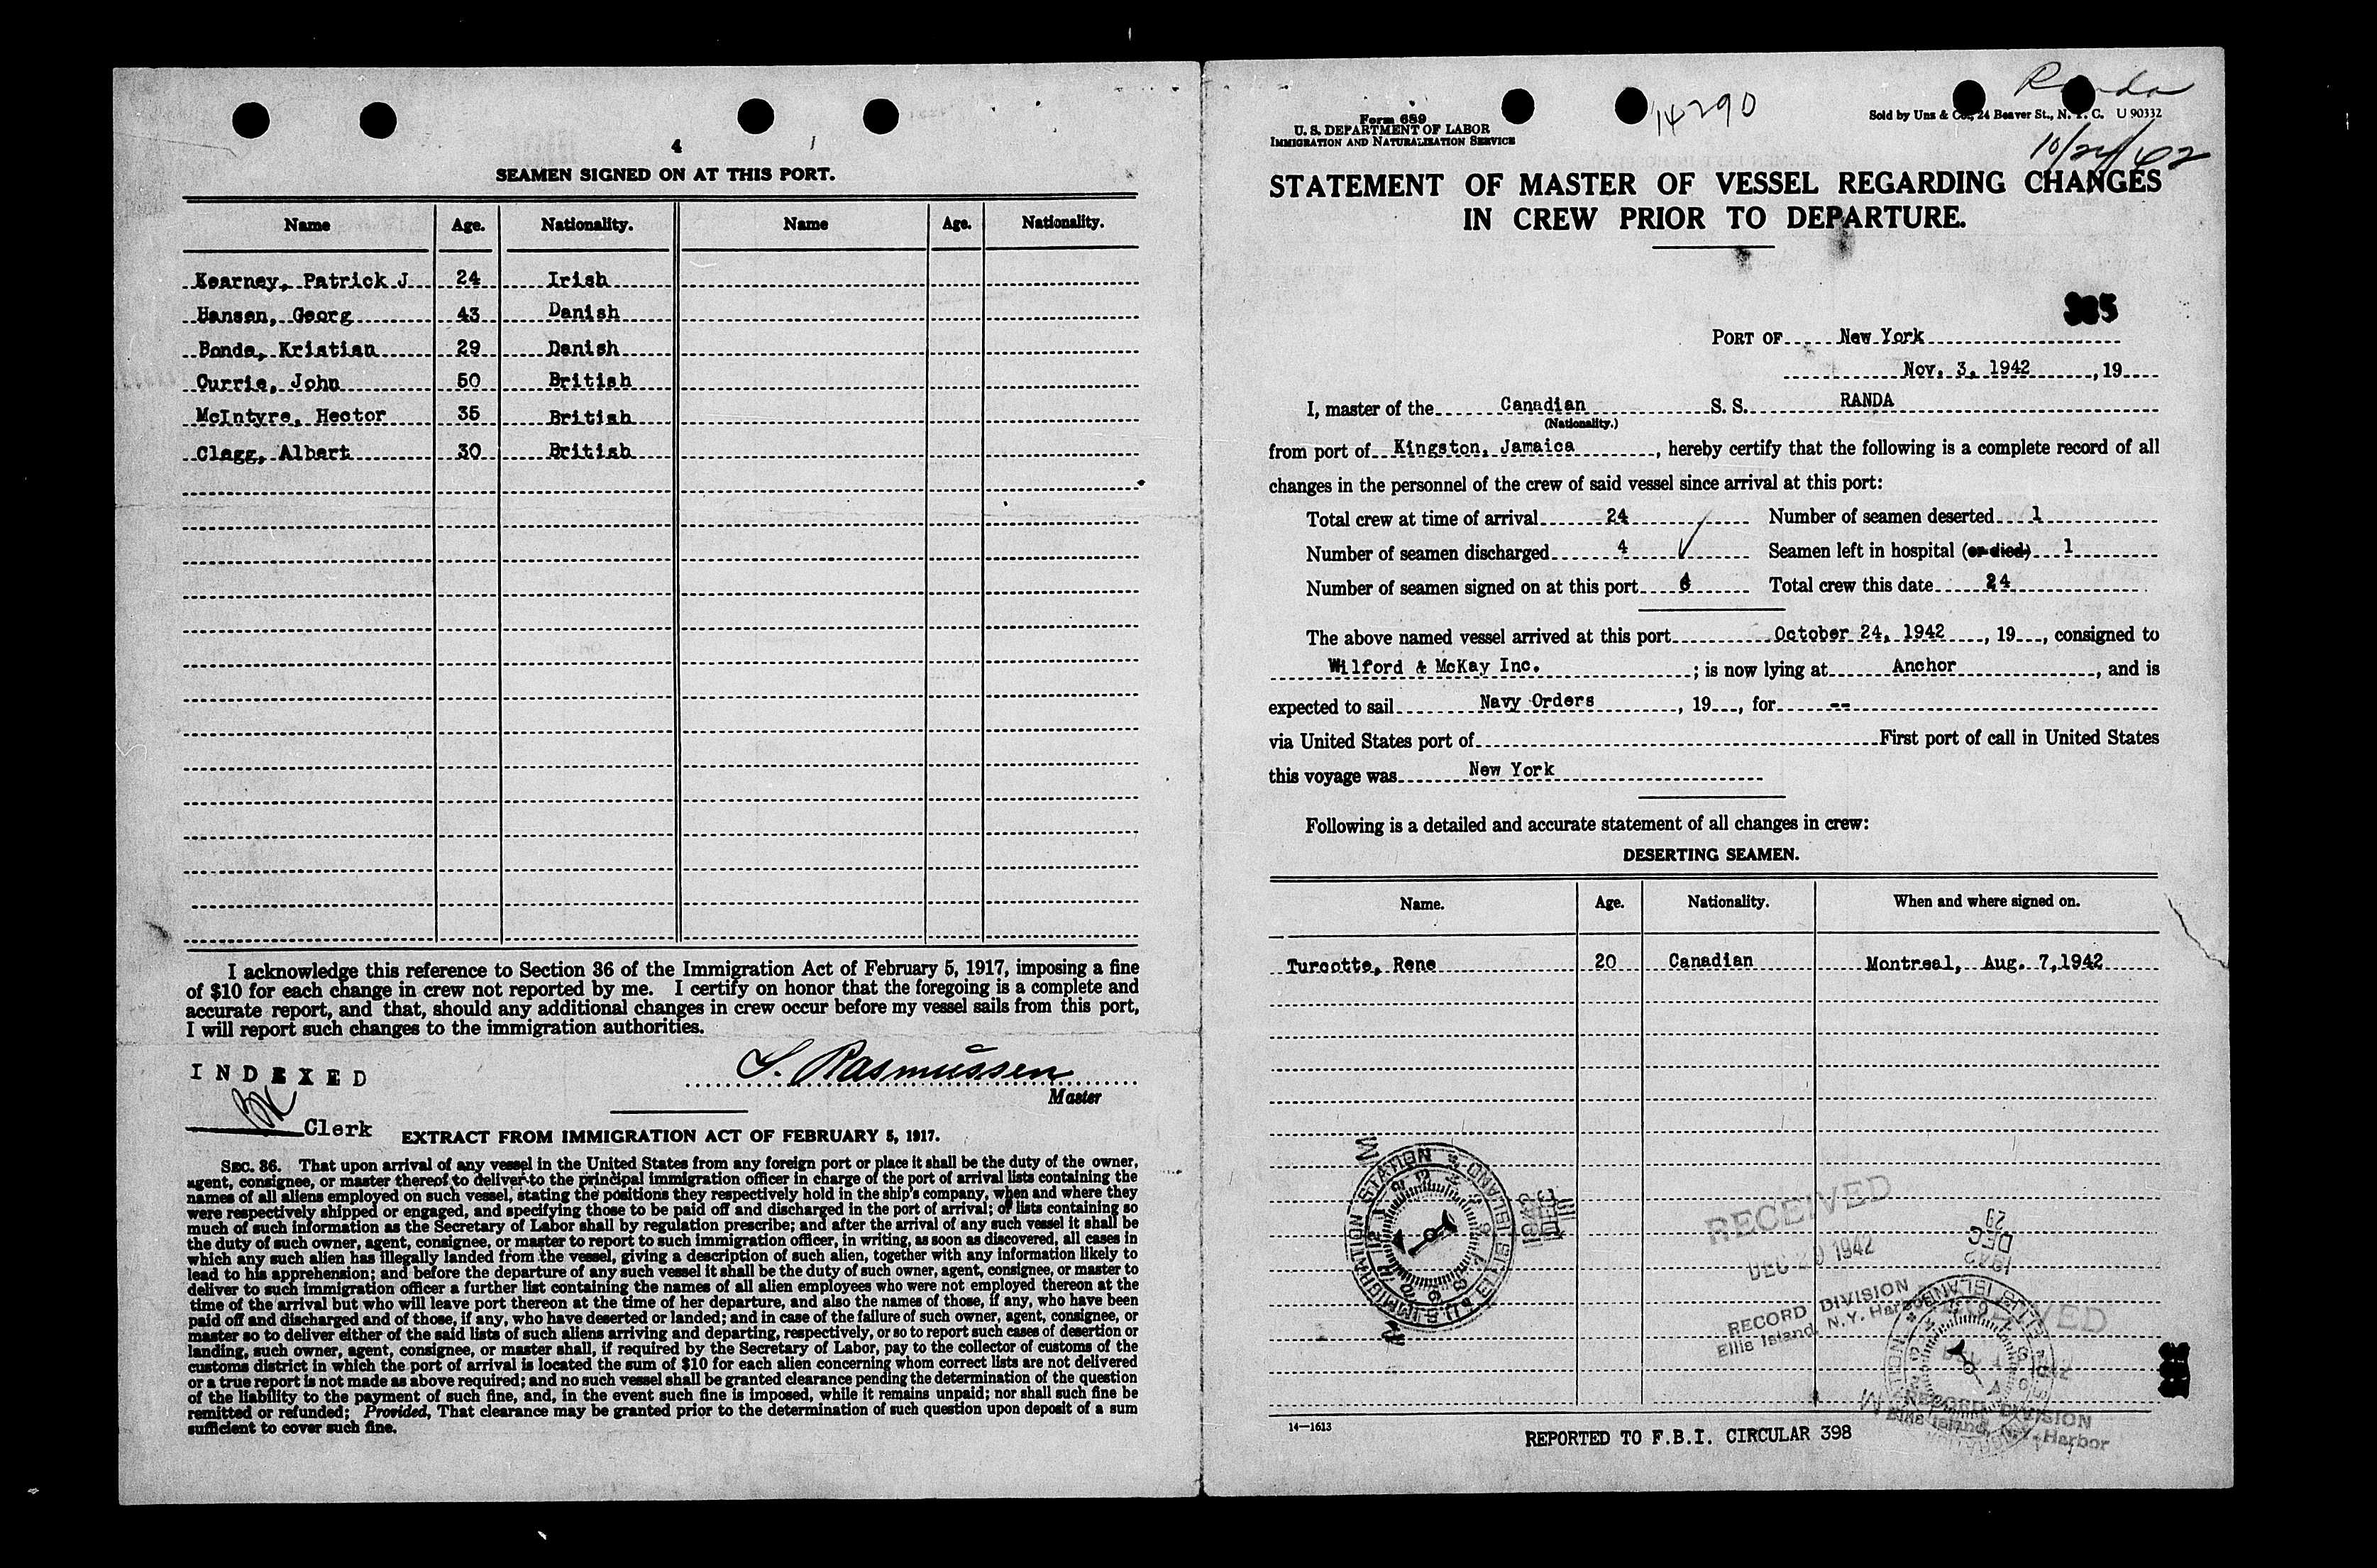 4
SEAMEN SIGNED ON AT THIS PORT.
Name Age. Nationality. Name Age. Nationality.
Kearney, Patrick J 24 Irish
Hansen, Georg 43 Danish
Bonde, Kristian 29 Danish
Currie, John 50 British
McIntyre, Hector 35 British
Clegg, Albert 30 British
I acknowledge this reference to Section 36 of the Immigration Act of February 5, 1917, imposing a fine
of $10 for each change in crew not reported by me. I certify on honor that the foregoing is a complete and
accurate report, and that, should any additional changes in crew occur before my vessel sails from this port,
I will report such changes to the immigration authorities.
INDEXED
S. Rasmussen
Master
Clerk
EXTRACT FROM IMMIGRATION ACT OF FEBRUARY 5, 1917.
SEC. 36. That upon arrival of any vessel in the United States from any foreign port or place it shall be the duty of the owner,
agent, consignee, or master thereof to deliver to the principal immigration officer in charge of the port of arrival lists containing the
names of all aliens employed on such vessel, stating the positions they respectively hold in the ship's company, when and where they
were respectively shipped or engaged, and specifying those to be paid off and discharged in the port of arrival; or lists containing so
much of such information as the Secretary of Labor shall by regulation prescribe; and after the arrival of any such vessel it shall be
the duty of such owner, agent, consignee, or master to report to such immigration officer, in writing, as soon as discovered, all cases in
which any such alien has illegally landed from the vessel, giving a description of such alien, together with any information likely to
lead to his apprehension; and before the departure of any such vessel it shall be the duty of such owner, agent, consignee, or master to
deliver to such immigration officer a further list containing the names of all alien employees who were not employed thereon at the
time of the arrival but who will leave port thereon at the time of her departure, and also the names of those, if any, who have been
paid off and discharged and of those, if any, who have deserted or landed; and in case of the failure of such owner, agent, consignee, or
master so to deliver either of the said lists of such aliens arriving and departing, respectively, or so to report such cases of desertion or
landing, such owner, agent, consignee, or master shall, if required by the Secretary of Labor, pay to the collector of customs of the
customs district in which the port of arrival is located the sum of $10 for each alien concerning whom correct lists are not delivered
or a true report is not made as above required; and no such vessel shall be granted clearance pending the determination of the question
of the liability to the payment of such fine, and, in the event such fine is imposed, while it remains unpaid; nor shall such fine be
remitted or refunded; Provided, That clearance may be granted prior to the determination of such question upon deposit of a sum
sufficient to cover such fine.
Randa
Form 689
U. S. DEPARTMENT OF LABOR
IMMIGRATION AND NATURALIZATION SERVICE
14290
Sold by Unz & Co., 24 Beaver St., N. Y. C. U 90332
10/24/42
STATEMENT OF MASTER OF VESSEL REGARDING CHANGES
IN CREW PRIOR TO DEPARTURE.
PORT OF New York
Nov. 3, 1942, 19
I, master of the Canadian S. S. RANDA
(Nationality.)
from port of Kingston, Jamaica, hereby certify that the following is a complete record of all
changes in the personnel of the crew of said vessel since arrival at this port:
Total crew at time of arrival 24 Number of seamen deserted 1
Number of seamen discharged 4 Seamen left in hospital (or died) 1
Number of seamen signed on at this port 6 Total crew this date 24
The above named vessel arrived at this port October 24, 1942, 19, consigned to
Wilford & McKay Inc.; is now lying at Anchor, and is
expected to sail Navy Orders, 19, for --
via United States port of First port of call in United States
this voyage was New York
Following is a detailed and accurate statement of all changes in crew:
DESERTING SEAMEN.
Name. Age. Nationality. When and where signed on.
Turcotte, Rene 20 Canadian Montreal, Aug. 7, 1942
U.S. IMMIGRATION STATION ELLIS ISLAND
RECEIVED
DEC 29 1942
RECORD DIVISION
Ellis Island, N.Y. Harbor
1942
DEC
29
RECORD DIVISION
Ellis Island, N.Y. Harbor
14—1613
REPORTED TO F.B.I. CIRCULAR 398